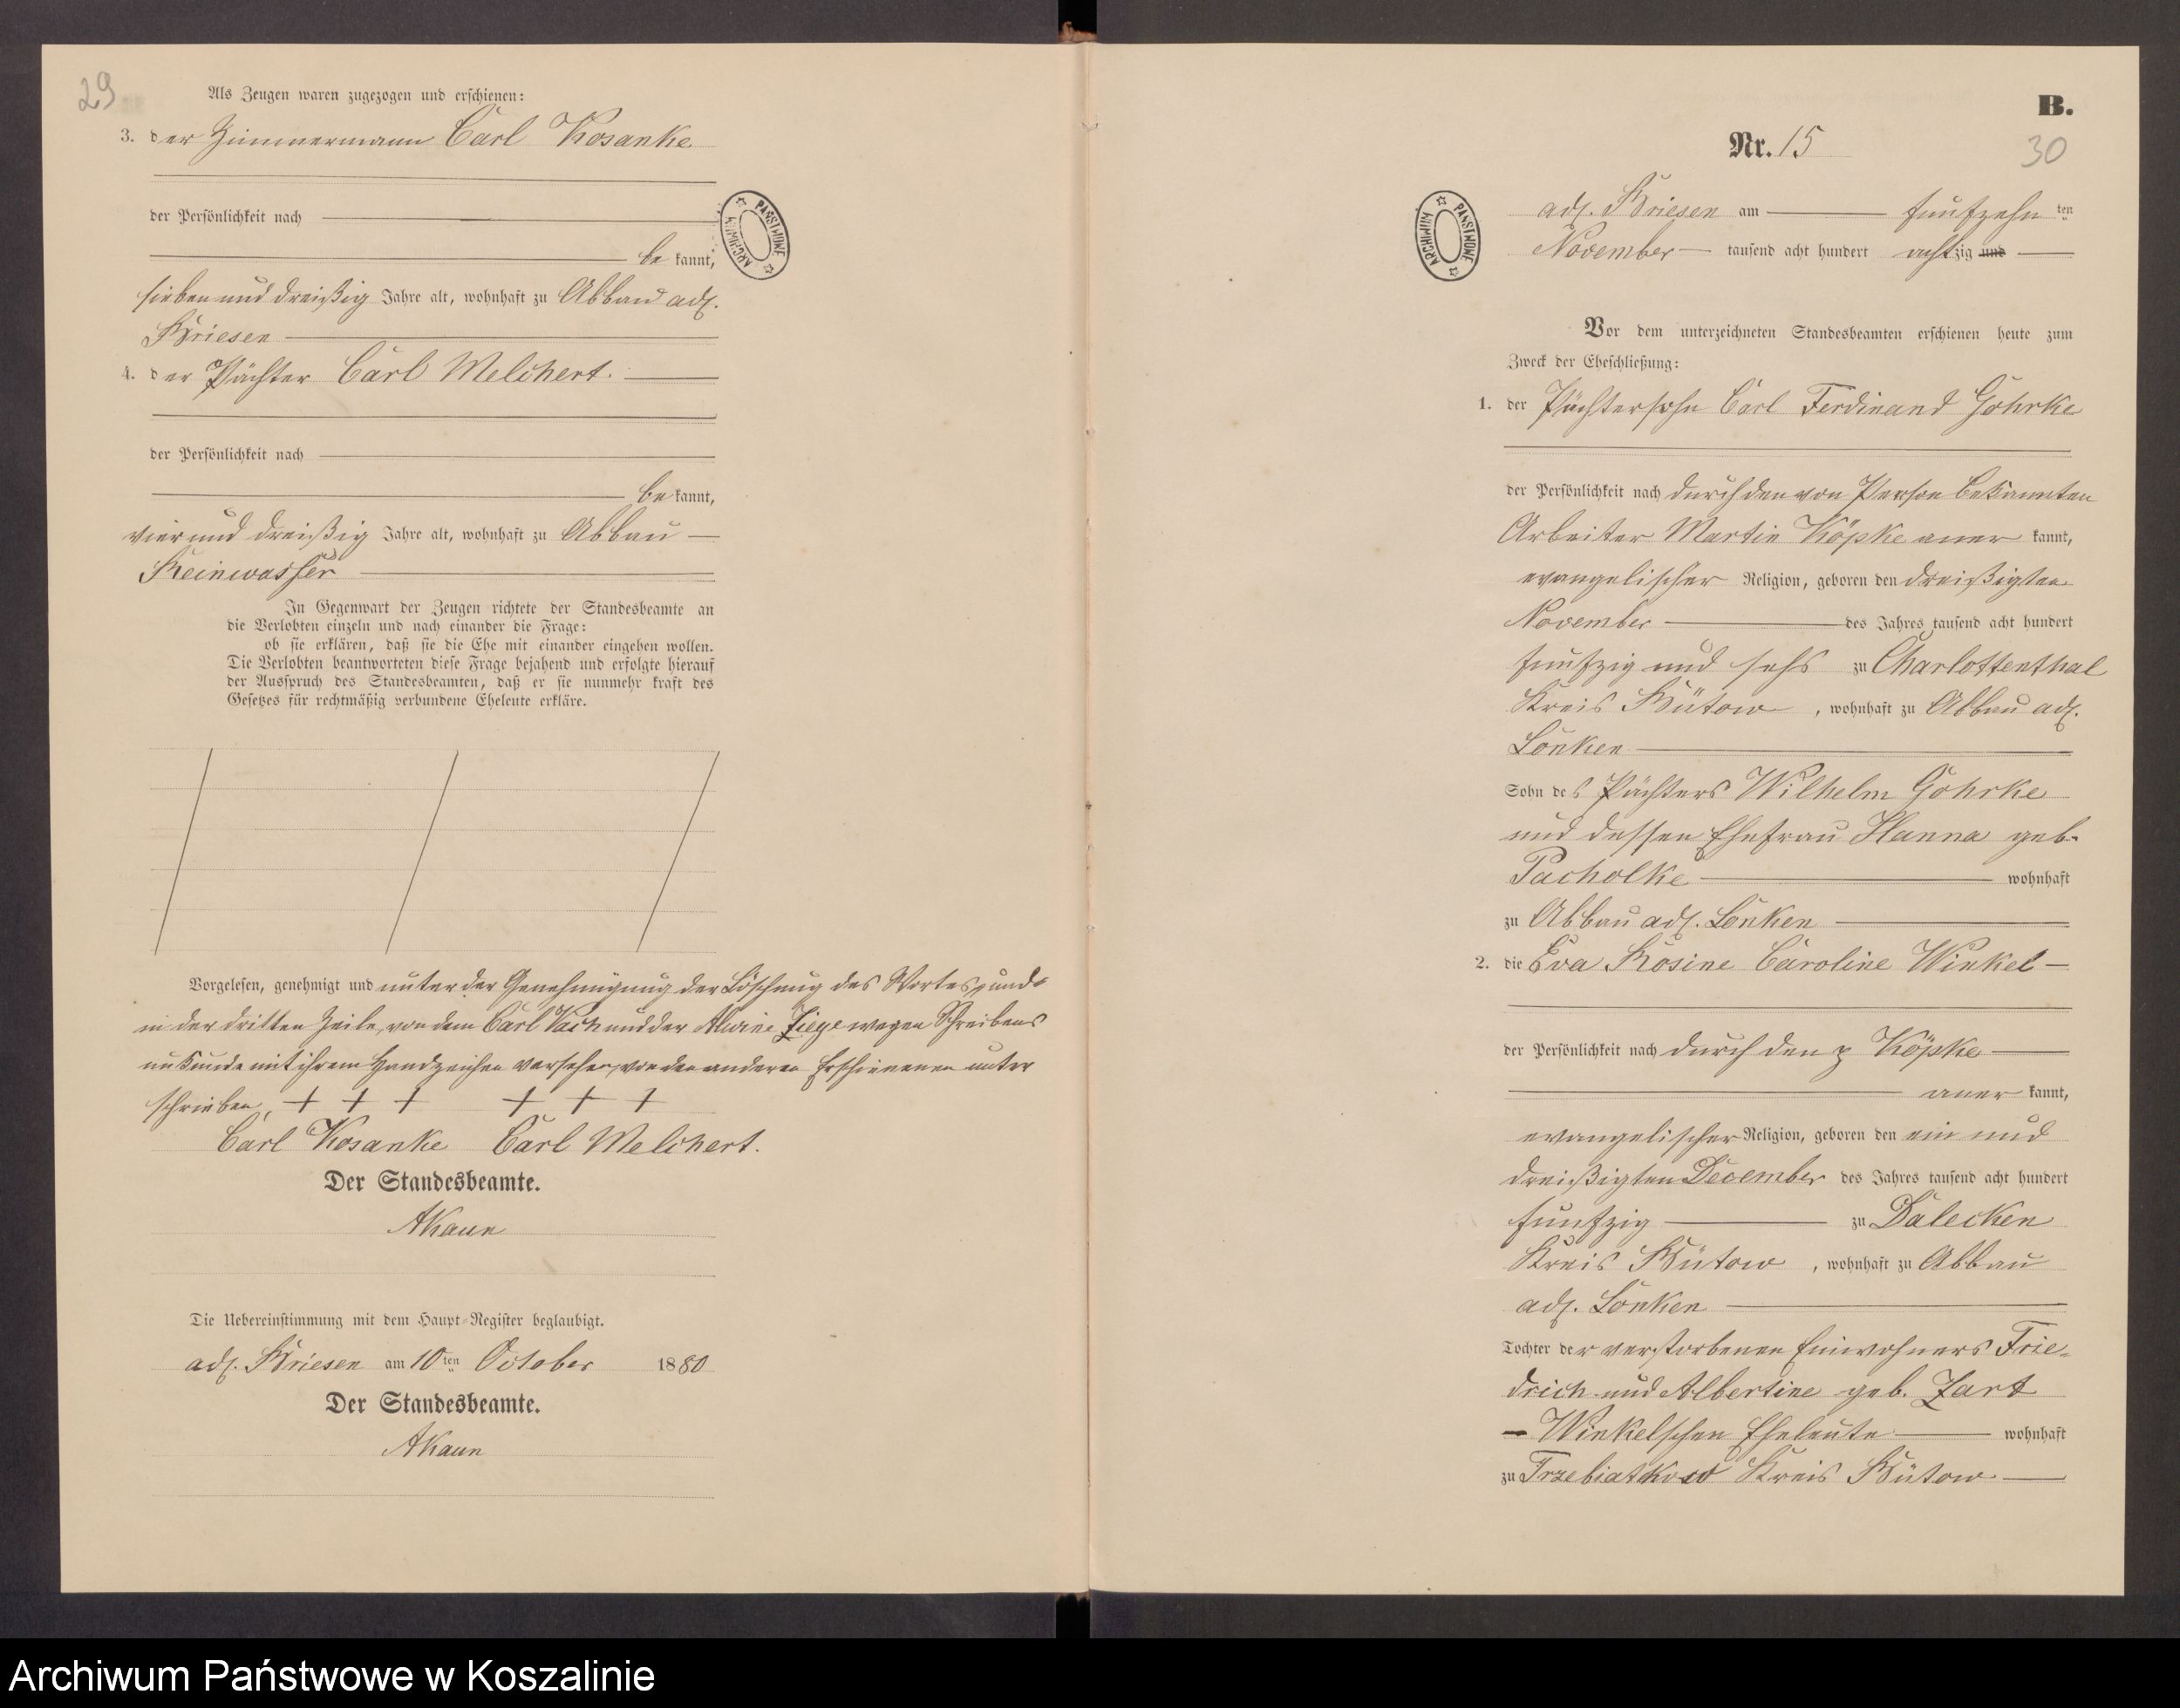 29
Als Zeugen waren zugezogen und erschienen:
3. der Zimmermann Carl Kosanke
der Persönlichkeit nach
be kannt,
sieben und dreißig Jahre alt, wohnhaft zu Abbau adl.
Briesen
4. der Pächter Carl Melchert.
der Persönlichkeit nach
be kannt,
vier und dreißig Jahre alt, wohnhaft zu Abbau
Reinwasser
In Gegenwart der Zeugen richtete der Standesbeamte an
die Verlobten einzeln und nach einander die Frage:
ob sie erklären, daß sie die Ehe mit einander eingehen wollen.
Die Verlobten beantworteten diese Frage bejahend und erfolgte hierauf
der Ausspruch des Standesbeamten, daß er sie nunmehr kraft des
Gesetzes für rechtmäßig verbundene Eheleute erkläre.
Vorgelesen, genehmigt und unter der Genehmigung der Löschung des Wortes „und“
in der dritten Zeile, von dem Carl Vach und der Alwine Ziege wegen Schreibens
unkunde mit ihrem Handzeichen versehen, von den anderen Erschienenen unter
schrieben, + + + + + +
Carl Kosanke Carl Melchert.
Der Standesbeamte.
AKaun
Die Uebereinstimmung mit dem Haupt-Register beglaubigt.
adl. Briesen am 10 ten October 1880
Der Standesbeamte.
AKaun
ARCHIWUM PAŃSTWOWE
B.
Nr. 15
30
ARCHIWUM PAŃSTWOWE
adl. Briesen am funfzehn ten
November tausend acht hundert achtzig und
Vor dem unterzeichneten Standesbeamten erschienen heute zum
Zweck der Eheschließung:
1. der Pächtersohn Carl Ferdinand Gohrke
der Persönlichkeit nach durch den von Person bekannten
Arbeiter Martin Köpke aner kannt,
evangelischer Religion, geboren den dreißigten
November des Jahres tausend acht hundert
funfzig und sechs zu Charlottenthal
Kreis Bütow, wohnhaft zu Abbau adl.
Lonken
Sohn des Pächters Wilhelm Gohrke
und dessen Ehefrau Hanna geb.
Pacholke wohnhaft
zu Abbau adl. Lonken
2. die Eva Rosine Caroline Winkel
der Persönlichkeit nach durch den p Köpke
aner kannt,
evangelischer Religion, geboren den ein und
dreißigten December des Jahres tausend acht hundert
funfzig zu Dalecken
Kreis Bütow, wohnhaft zu Abbau
adl. Lonken
Tochter der verstorbenen Einwohners Frie-
drich und Albertine geb. Zart
– Winkelschen Eheleute wohnhaft
zu Trzebiatkow Kreis Bütow
Archiwum Państwowe w Koszalinie